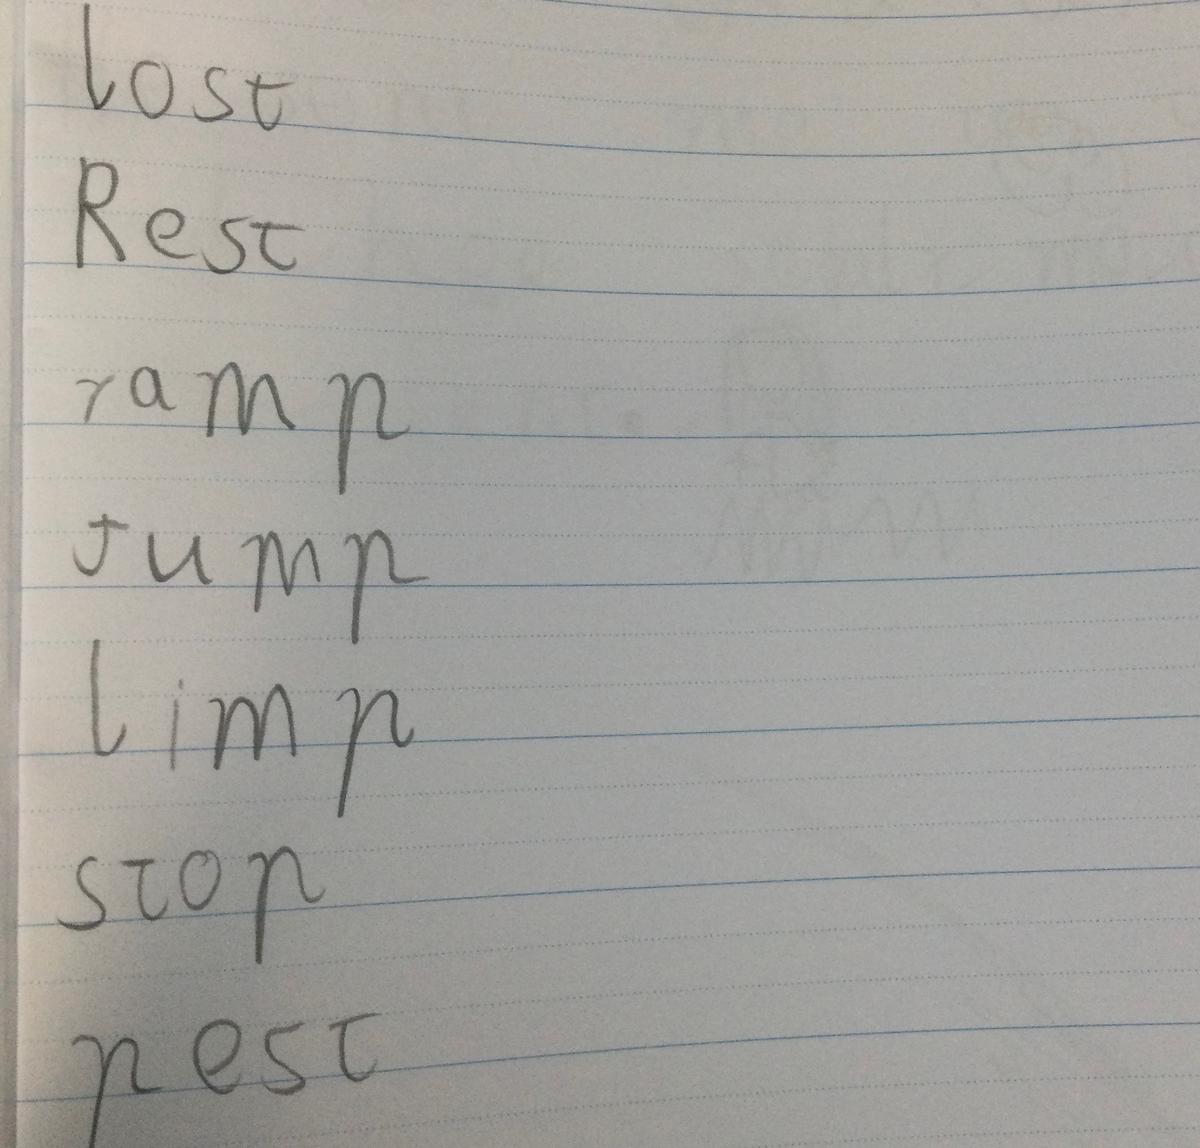 lost
Rest
ramp
Jump
limp
stop
pest